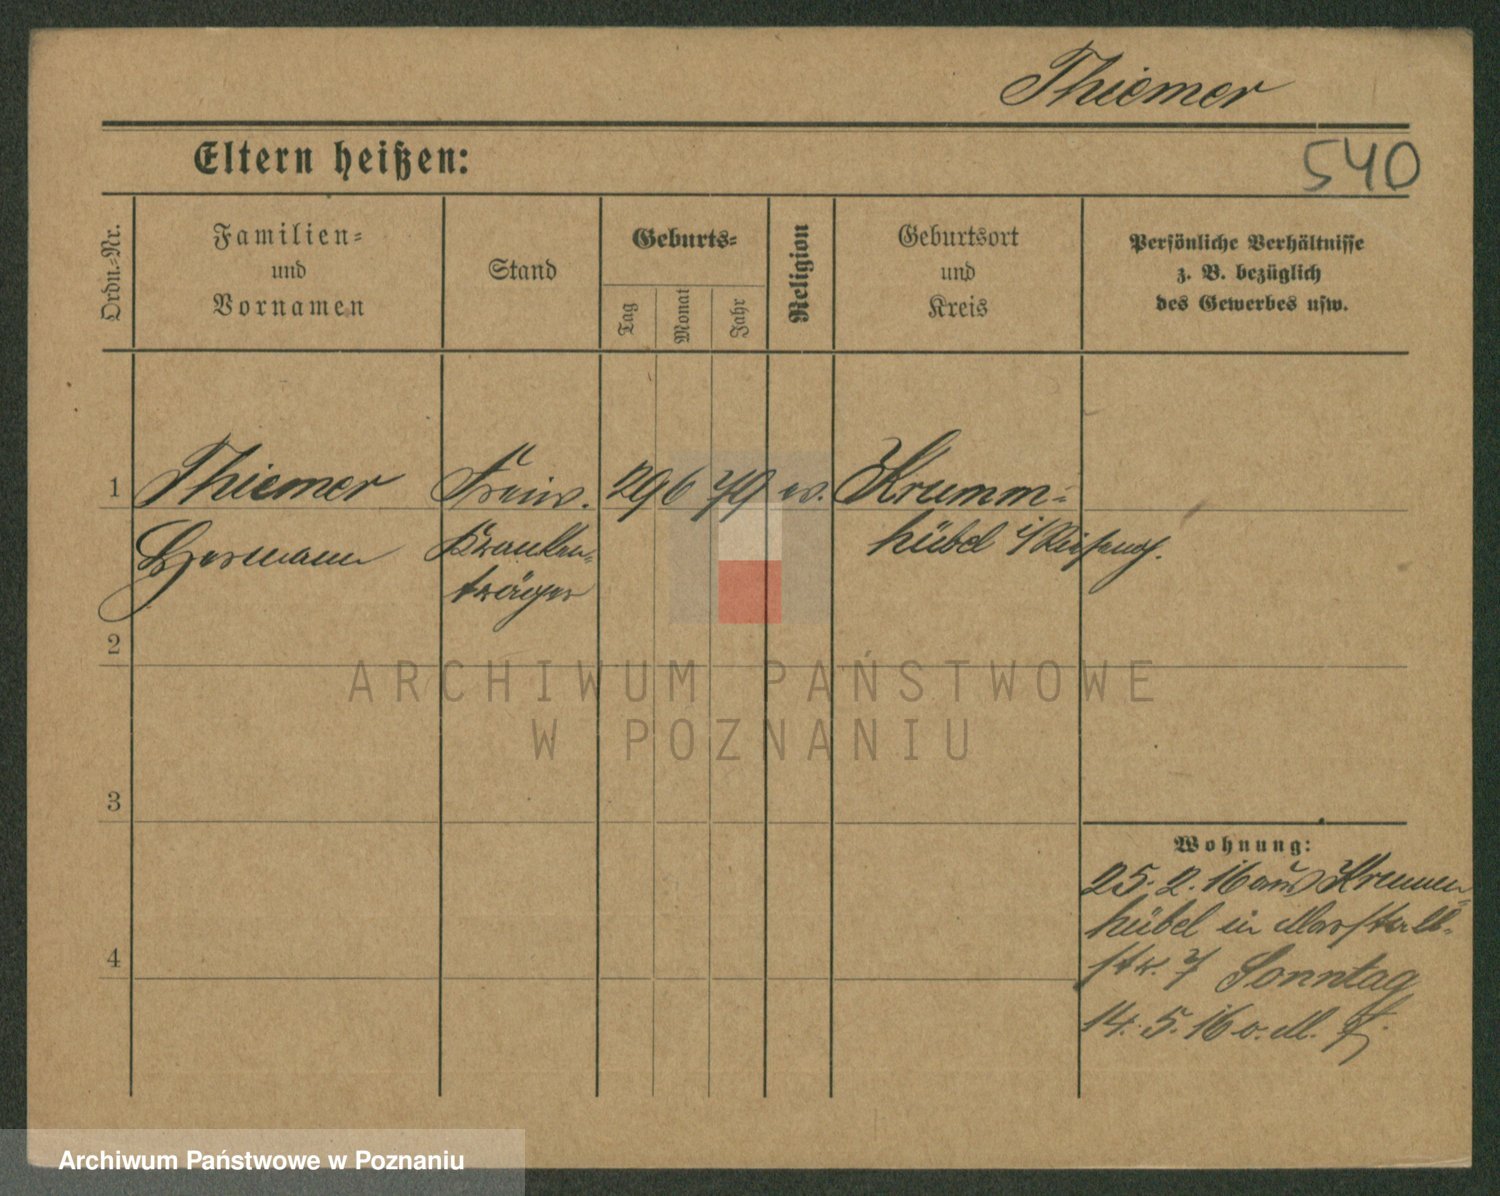 Thiemer
Eltern heißen:
540
Ordn.-Nr.
Familien-
und
Vornamen
Stand
Geburts-
Tag
Monat
Jahr
Religion
Geburtsort
und
Kreis
Persönliche Verhältnisse
z. B. bezüglich
des Gewerbes usw.
1 Thiemer Freiw. 29 6 79 ev. Krumm-
Hermann Kranken- hübel i/Riesengb.
träger
2
3
4
Wohnung:
25. 2. 16 aus Krumm-
hübel in Marstall-
str. 7 Sonntag
14. 5. 16 o. M.
ARCHIWUM PAŃSTWOWE
W POZNANIU
Archiwum Państwowe w Poznaniu